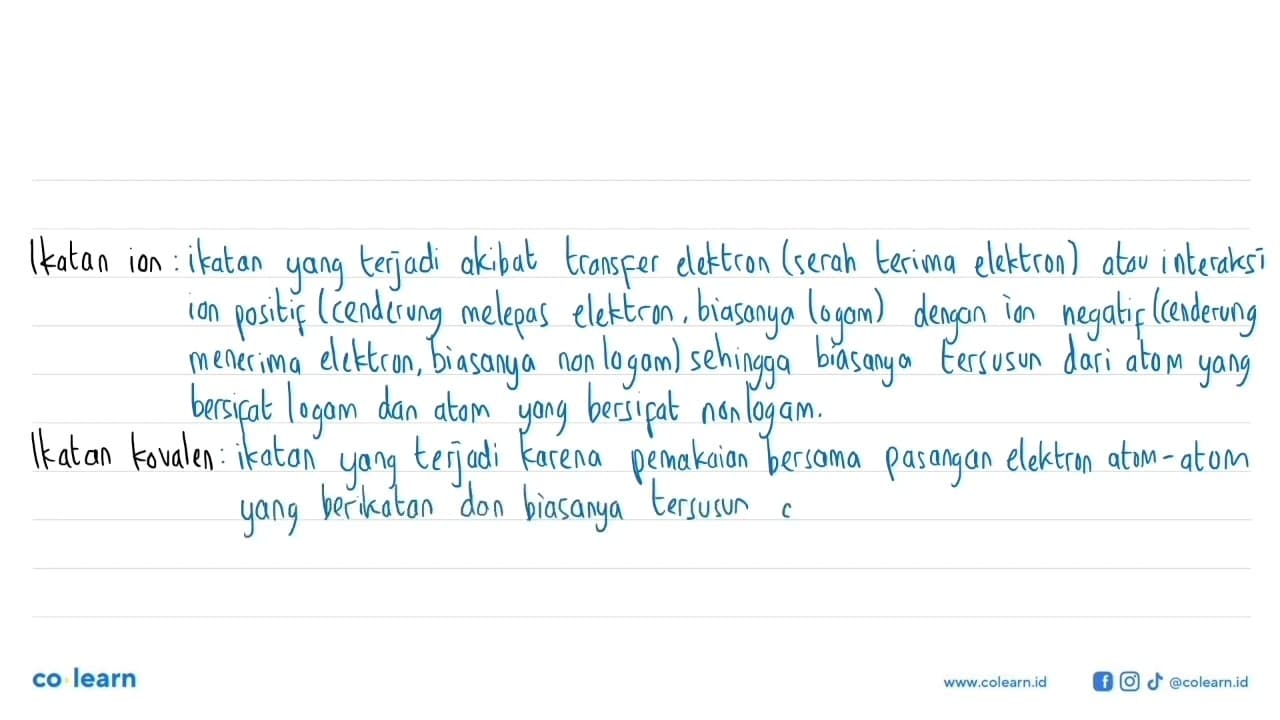 Ikatan ion : ikatan yang terjadi akibat transfer elektron (serah terima elektron) atau interaksi
ion positif (cenderung melepas elektron, biasanya logam) dengan ion negatif (cenderung
menerima elektron, biasanya nonlogam) sehingga biasanya tersusun dari atom yang
bersifat logam dan atom yang bersifat nonlogam.
Ikatan kovalen : ikatan yang terjadi karena pemakaian bersama pasangan elektron atom-atom
yang berikatan dan biasanya tersusun c
co learn
www.colearn.id
@colearn.id